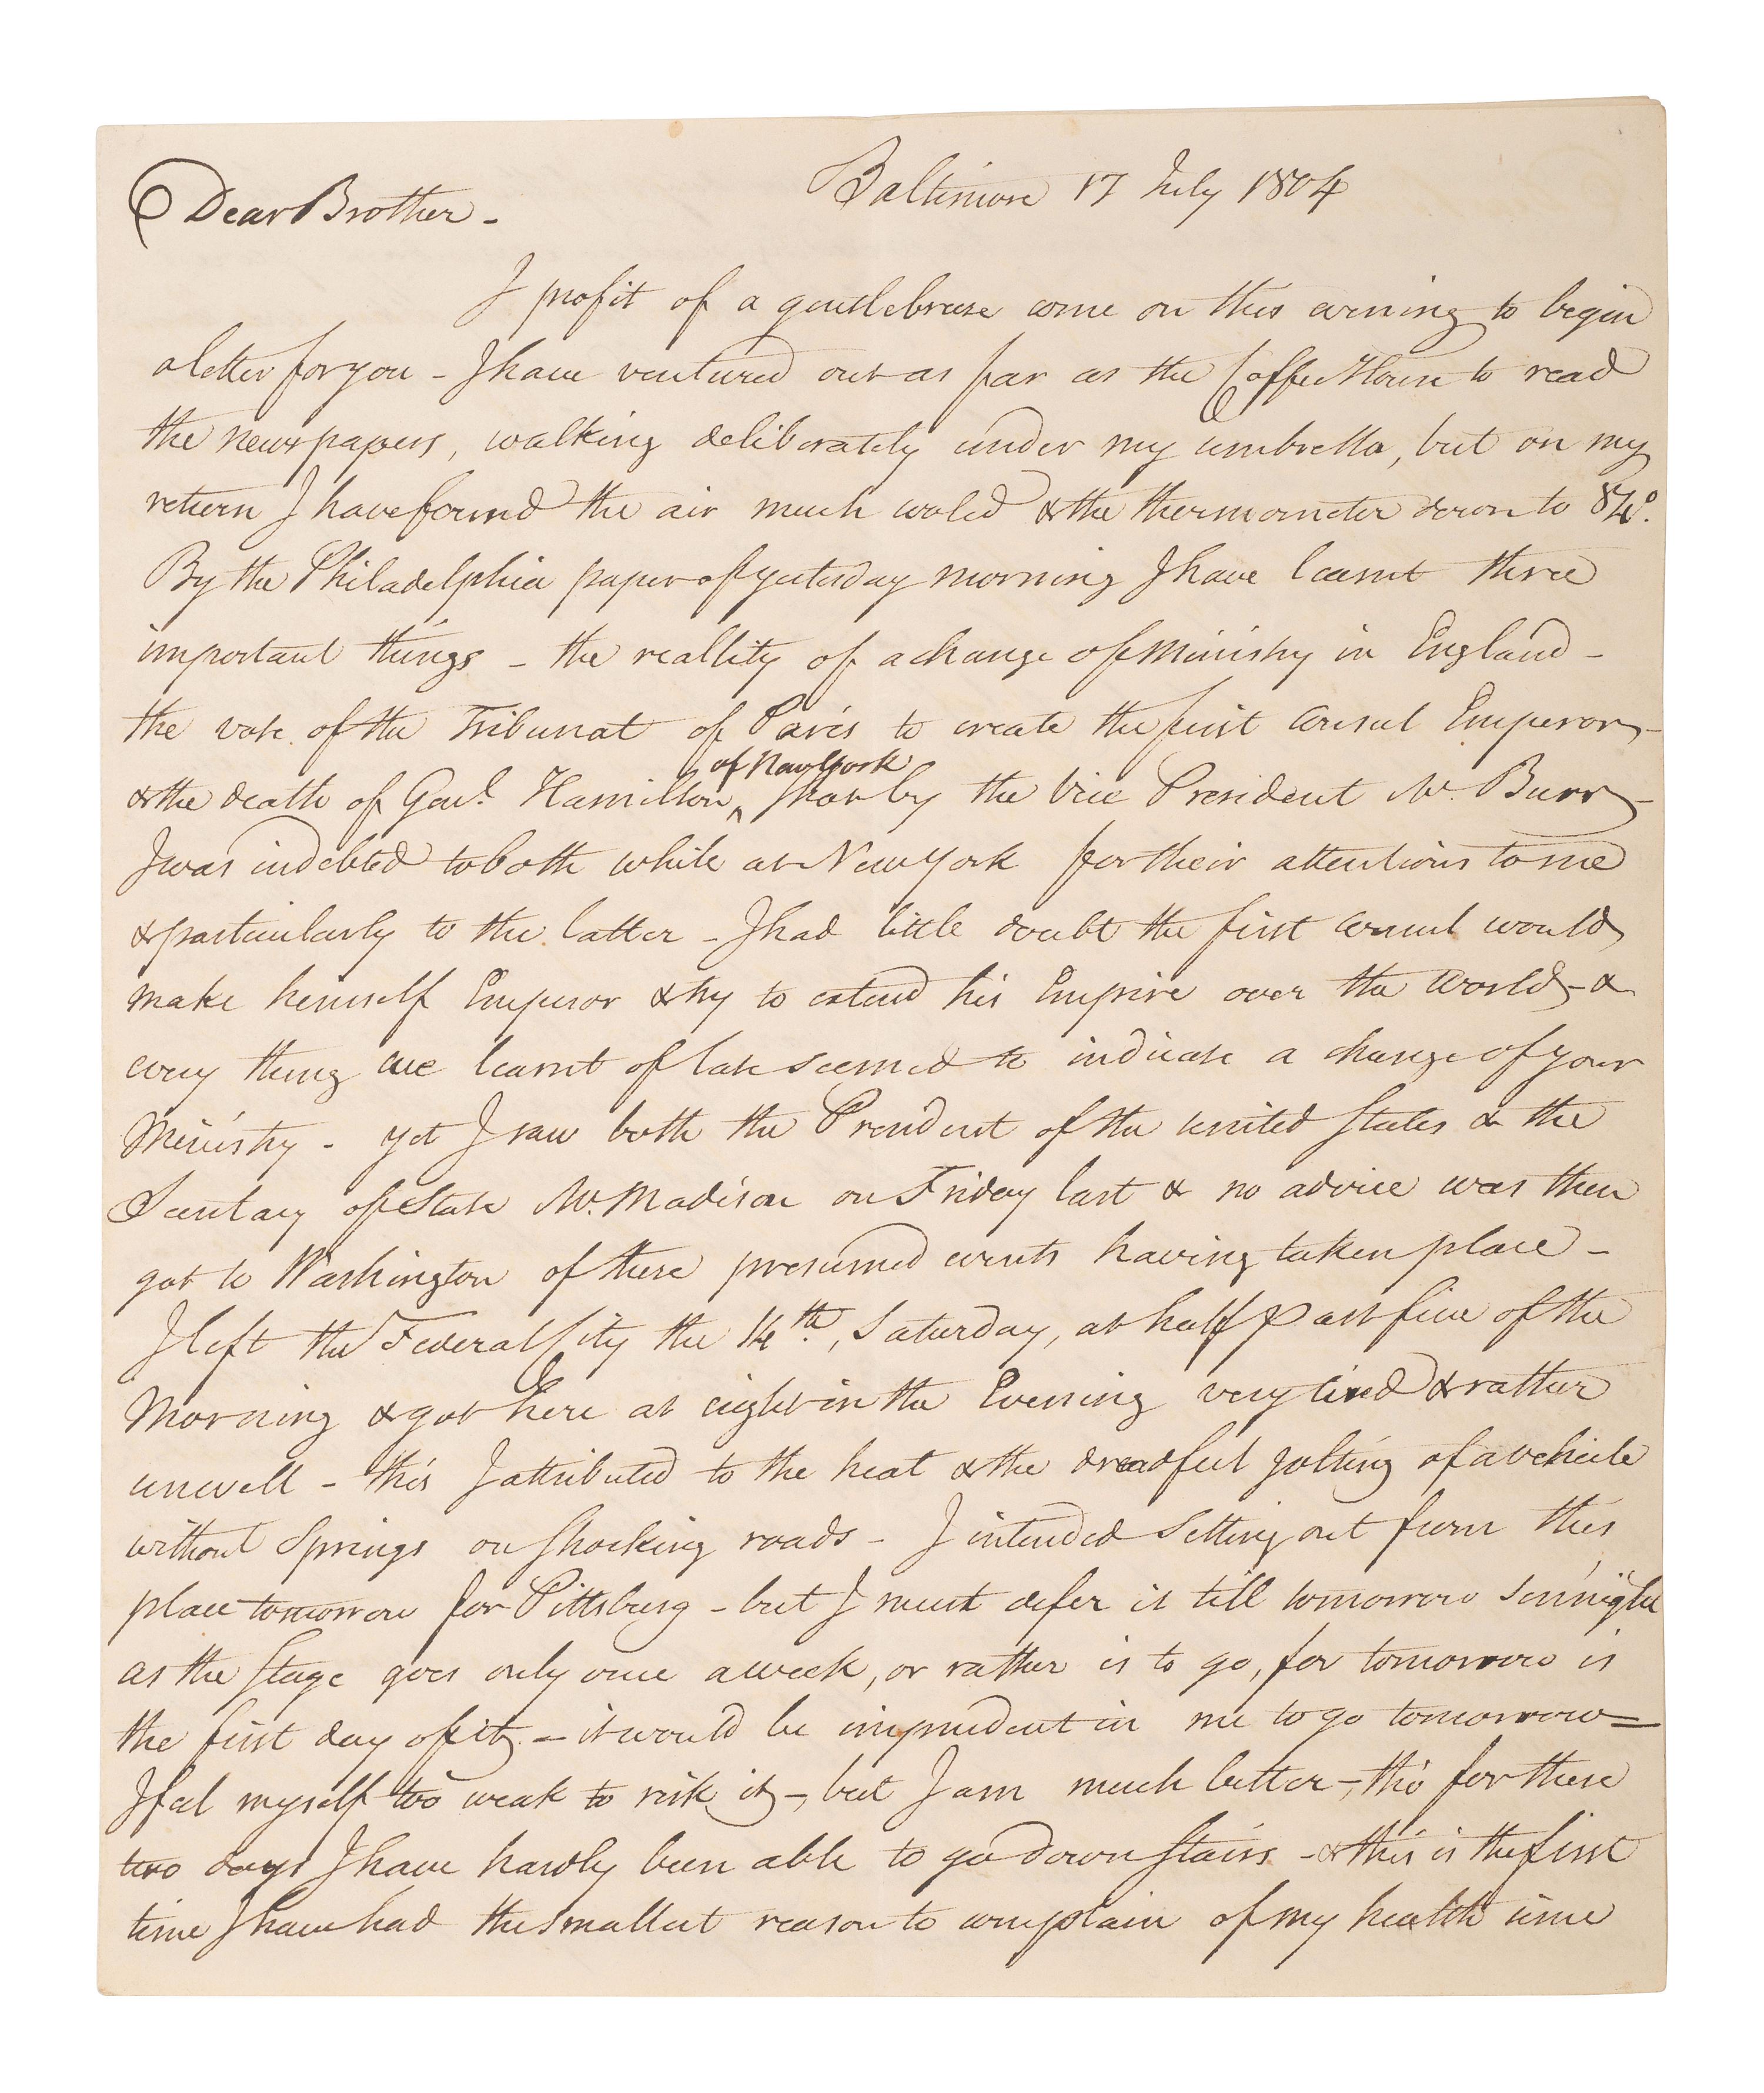 Baltimore 17 July 1804
Dear Brother -
I profit of a gentle breeze come on this evening to begin
a letter for you - I have ventured out as far as the Coffee House to read
the newspapers, walking deliberately under my umbrella, but on my
return I have found the air much cooled & the thermometer down to 84°.
By the Philadelphia paper of yesterday morning I have learnt three
important things - the reallity of a change of Ministry in England -
the vote of the Tribunat of Paris to create the first Consul Emperor -
of New York
& the death of Genl. Hamilton ^ shot by the Vice President Mr. Burr -
I was indebted to both while at New York for their attentions to me
& particularly to the latter - I had little doubt the first Consul would
make himself Emperor & try to extend his Empire over the World - &
every thing we learnt of late seemed to indicate a change of your
Ministry - yet I saw both the President of the United States & the
Secretary of State Mr. Madison on Friday last & no advice was then
got to Washington of these presumed events having taken place -
I left the Federal City the 14th., Saturday, at half past five of the
Morning & got here at eight in the Evening very tired & rather
unwell - this I attributed to the heat & the dreadful jolting of a vehicle
without Springs on shocking roads - I intended setting out from this
place tomorrow for Pittsburg - but I must defer it till tomorrow sennight
as the Stage goes only once a week, or rather is to go, for tomorrow is
the first day of it - it would be imprudent in me to go tomorrow =
I feel myself too weak to risk it -, but I am much better -, tho' for these
two days I have hardly been able to go down Stairs - & this is the first
time I have had the smallest reason to complain of my health since